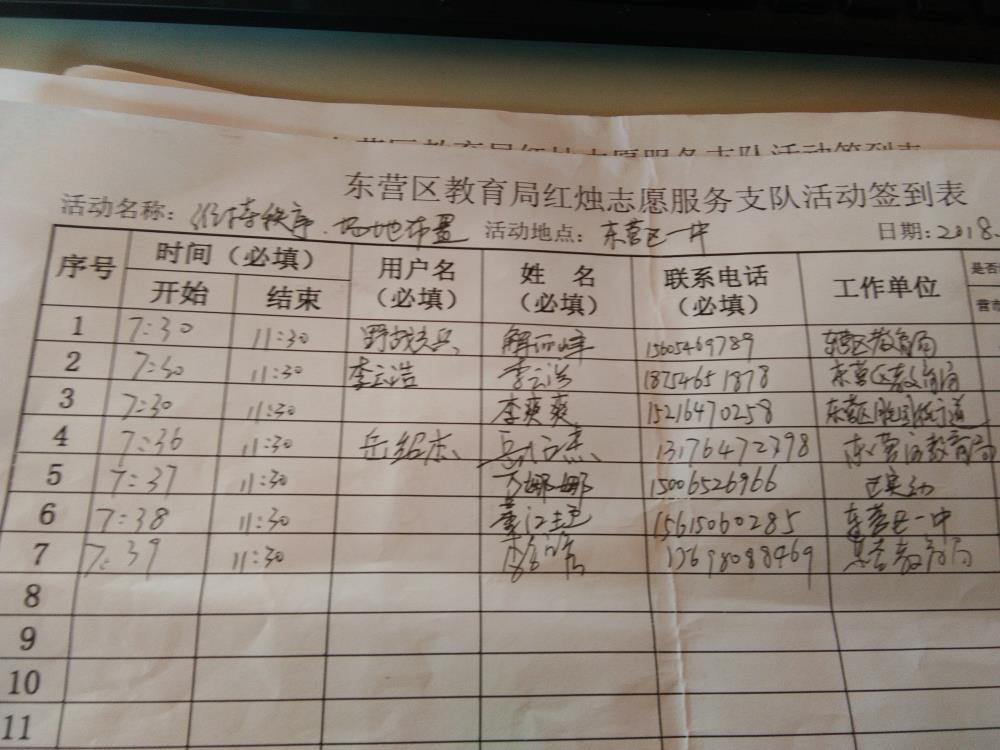 东营区教育局红烛志愿服务支队活动签到表
活动名称：维持秩序、场地布置 活动地点：东营区一中 日期：2018.
序号 时间（必填） 用户名（必填） 姓名（必填） 联系电话（必填） 工作单位 是否
开始 结束
1 7:30 11:30 15605469789 东营区教育局
2 7:30 11:30 李云浩 李云浩 18754651878 东营区教育局
3 7:30 11:30 李爽爽 15216470258 东营区
4 7:36 11:30 岳绍杰 岳绍杰 13176472398 东营区教育局
5 7:37 11:30 娜娜 15006526966 区实幼
6 7:38 11:30 董江 15615060285 东营区一中
7 7:39 11:30 13698088469 东营教育局
8
9
10
11